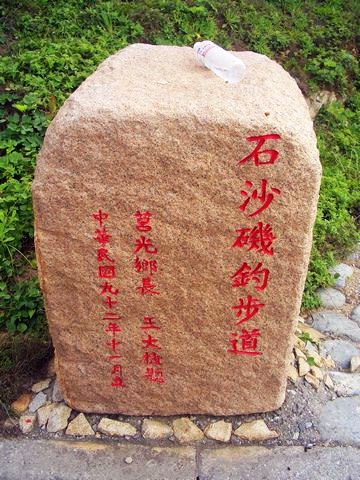 石沙磯釣步道
莒光鄉長 王大捷題
中華民國九十二年十一月立